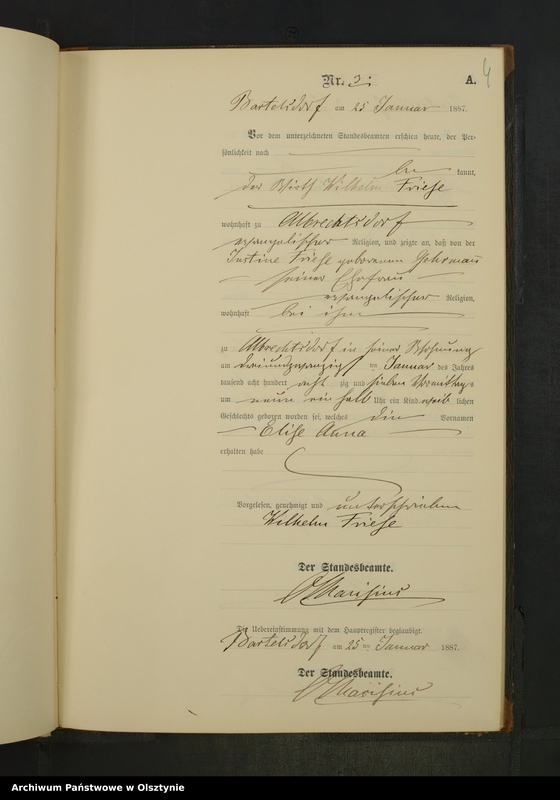 4
Nr. 3.
A.
Bartelsdorf am 25 Januar 1887.
Vor dem unterzeichneten Standesbeamten erschien heute, der Per-
sönlichkeit nach
be kannt,
der Wirth Wilhelm Friese
wohnhaft zu Albrechtsdorf
evangelischer Religion, und zeigte an, daß von der
Justine Friese geborenen
seiner Ehefrau
evangelischer Religion,
wohnhaft bei ihm
zu Albrechtsdorf in seiner Wohnung
am dreiundzwanzigsten Januar des Jahres
tausend acht hundert acht zig und sieben Vormittags
um neun ein halb Uhr ein Kind weib lichen
Geschlechts geboren worden sei, welches die Vornamen
Elise Anna
erhalten habe
Vorgelesen, genehmigt und unterschrieben
Wilhelm Friese
Der Standesbeamte.
Die Uebereinstimmung mit dem Hauptregister beglaubigt.
Bartelsdorf am 25 ten Januar 1887.
Der Standesbeamte.
Archiwum Państwowe w Olsztynie